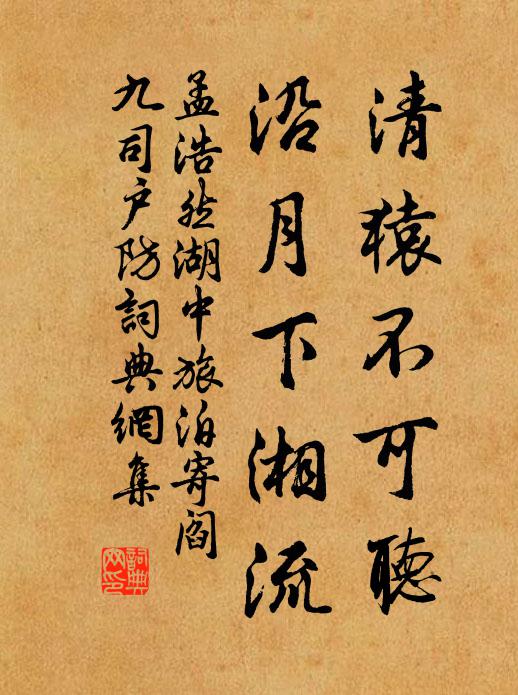 清猿不可聽
沿月下湘流
孟浩然湖中旅泊寄閻
九司户防詞典網集
詞典
网印